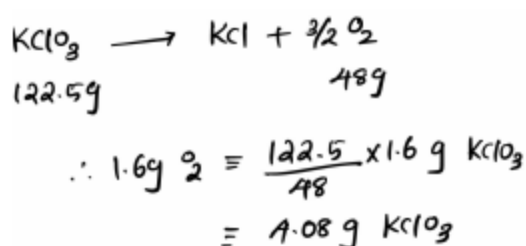 KClO₃ ⟶ KCl + 3/2 O₂
122.5g 48g
∴ 1.6g O₂ ≡ 122.5/48 x 1.6 g KClO₃
≡ 4.08 g KClO₃